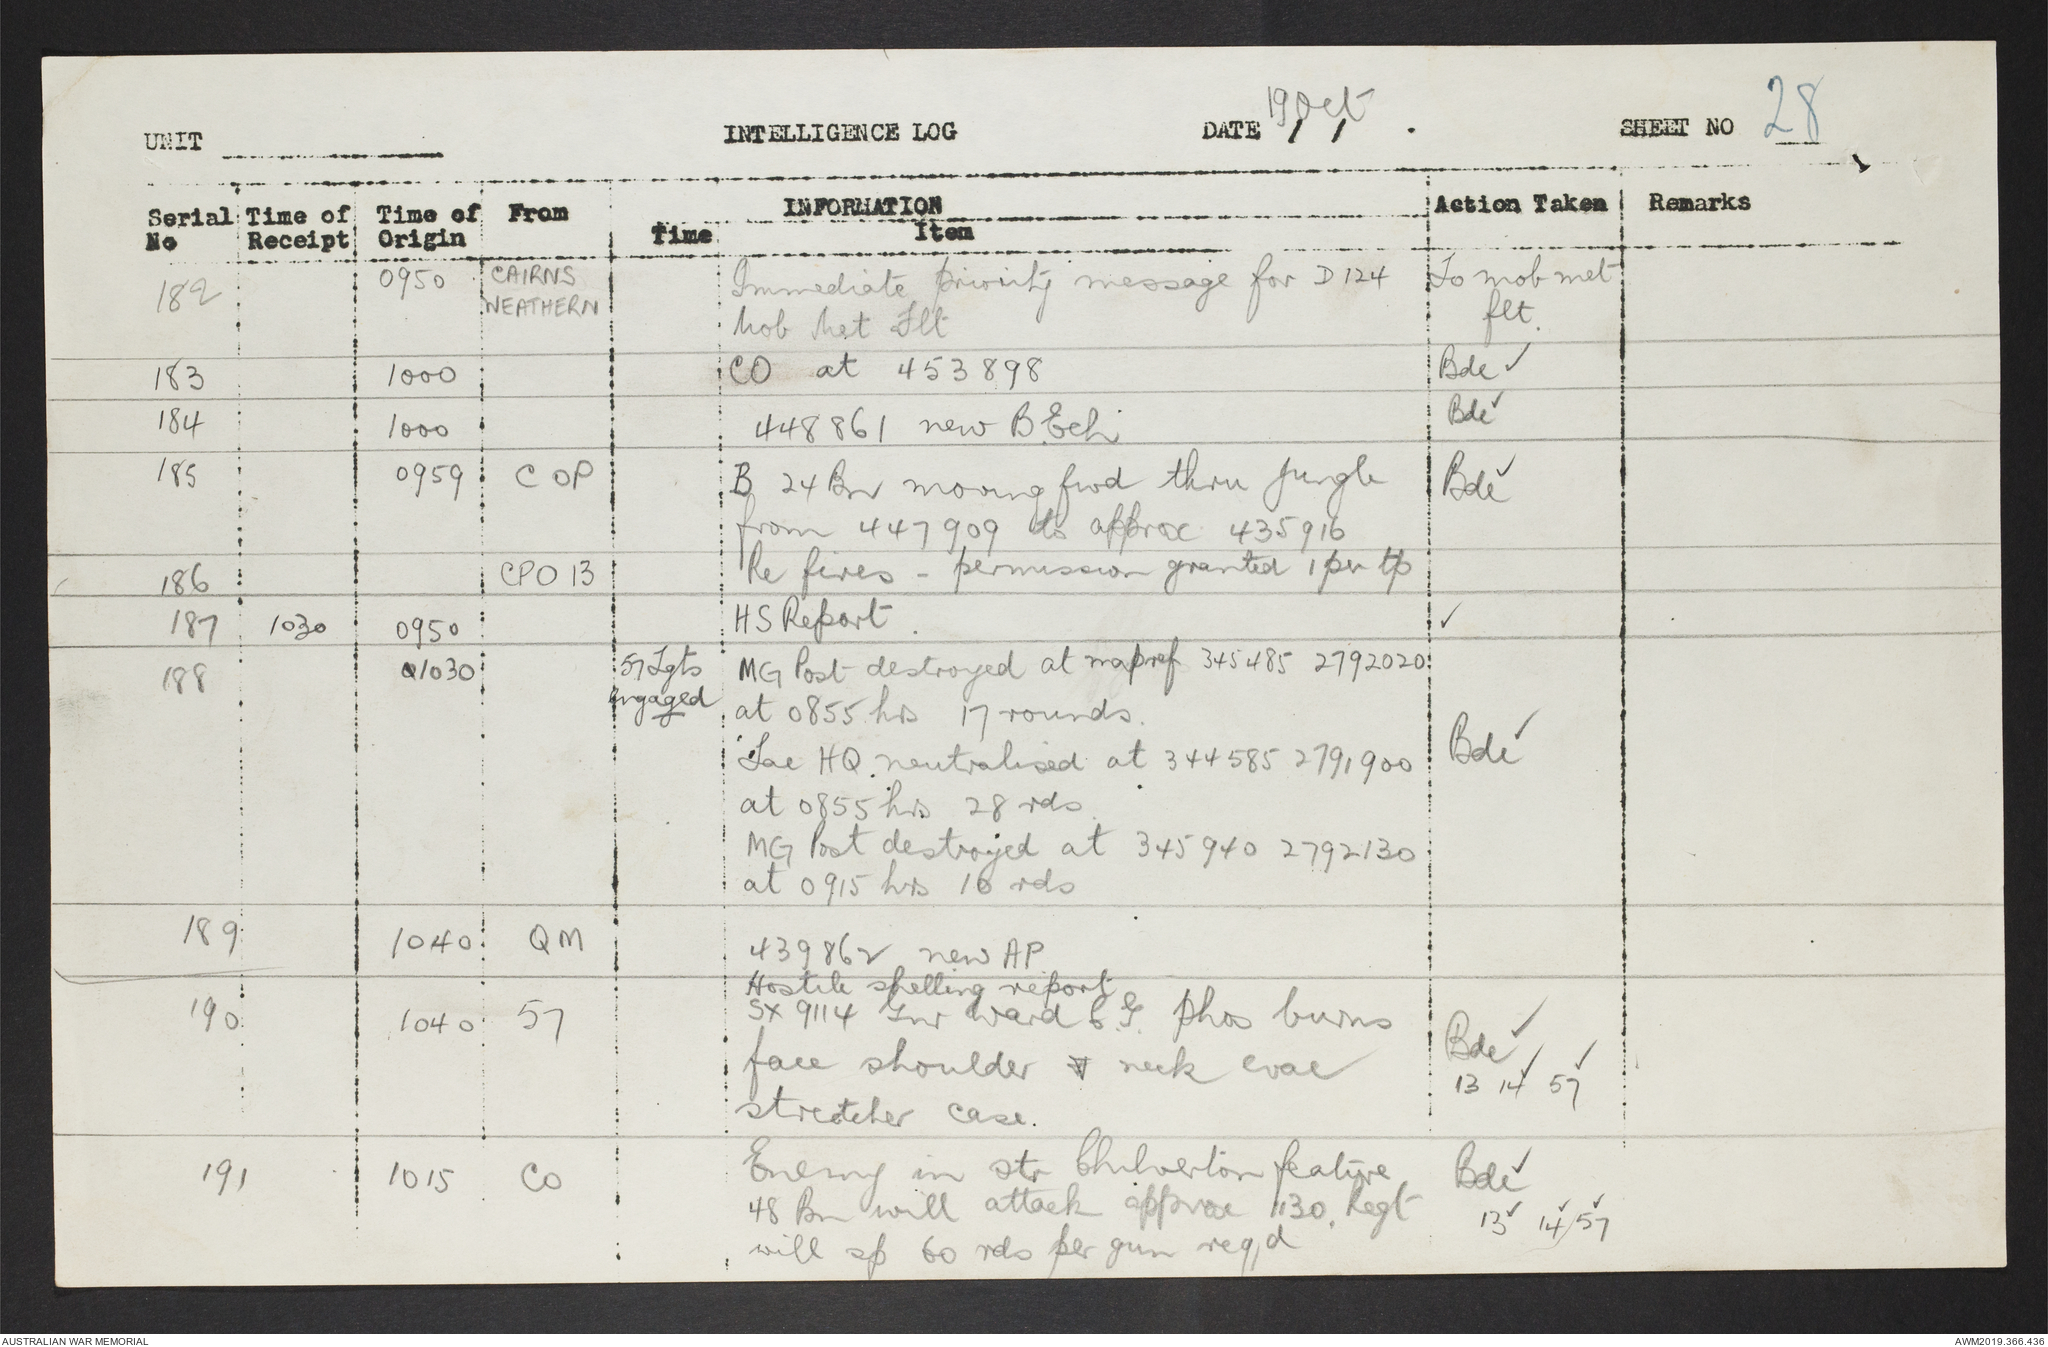 UNIT
INTELLIGENCE LOG
DATE 19 Oct
SHEET NO 28
Serial No
Time of Receipt
Time of Origin
From
INFORMATION
Time
Item
Action Taken
Remarks
182 0950 CAIRNS Immediate priority message for D 124 To mob met
WEATHERN Mob Met Flt flt.
183 1000 CO at 453898 Bde ✓
184 1000 448861 new B Ech Bde ✓
185 0959 C OP B 24 Bn moving fwd thru jungle Bde ✓
from 447909 to approx 435916
186 CPO 13 Re fires - permission granted 1 per tp
187 1030 0950 HS Report. ✓
188 1030 57 Tgts MG Post destroyed at mapref 345485 2792020
engaged at 0855 hrs 17 rounds.
Tac HQ neutralised at 344585 2791900 Bde ✓
at 0855 hrs 28 rds.
MG Post destroyed at 345940 2792130
at 0915 hrs 16 rds
189 1040 QM 439862 new AP
Hostile shelling report
190 1040 57 SX 9114 Gnr Ward C.G. Phos burns Bde ✓
face shoulder & neck evac 13 14 ✓ 57 ✓
stretcher case.
191 1015 CO Enemy in str Chilverton feature Bde ✓
48 Bn will attack approx 1130. Regt 13 ✓ 14 ✓ 57 ✓
will sp 60 rds per gun req,d
AUSTRALIAN WAR MEMORIAL
AWM2019.366.436